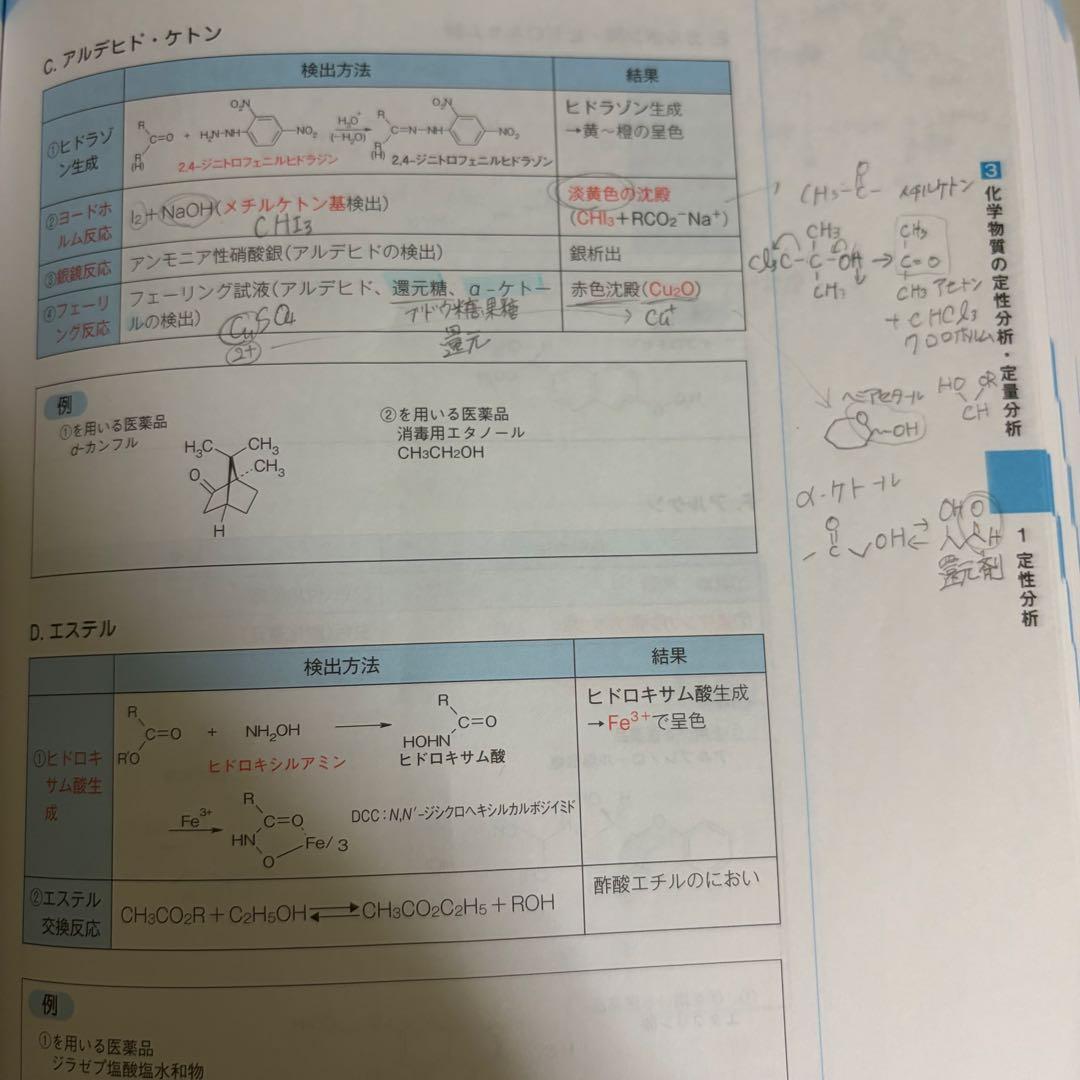 C. アルデヒド・ケトン
検出方法
結果
①ヒドラゾン生成
R
C=O + H2N-NH-
(H)
O2N
NO2
H3O+
(-H2O)
R
C=N-NH-
(H)
O2N
NO2
2,4-ジニトロフェニルヒドラジン
2,4-ジニトロフェニルヒドラゾン
ヒドラゾン生成
→黄～橙の呈色
②ヨードホルム反応
I2+NaOH(メチルケトン基検出)
CHI3
淡黄色の沈殿
(CHI3+RCO2-Na+)
③銀鏡反応
アンモニア性硝酸銀(アルデヒドの検出)
銀析出
④フェーリング反応
フェーリング試液(アルデヒド、還元糖、α-ケトー
ルの検出)
CuSO4
2+
ブドウ糖果糖
還元
赤色沈殿(Cu2O)
→ Cu+
例
①を用いる医薬品
d-カンフル
H3C
CH3
CH3
O
H
②を用いる医薬品
消毒用エタノール
CH3CH2OH
D. エステル
検出方法
結果
①ヒドロキサム酸生成
R
C=O + NH2OH
R'O
ヒドロキシルアミン
R
C=O
HOHN
ヒドロキサム酸
Fe3+
R
C=O
HN
O
Fe/3
DCC:N,N'-ジシクロヘキシルカルボジイミド
ヒドロキサム酸生成
→Fe3+で呈色
②エステル交換反応
CH3CO2R+C2H5OH ⇄ CH3CO2C2H5+ROH
酢酸エチルのにおい
例
①を用いる医薬品
ジラゼプ塩酸塩水和物
3 化学物質の定性分析・定量分析
1 定性分析
O
CH3-C- メチルケトン
CH3
Cl3C-C-OH →
CH3
CH3
C=O
CH3 アセトン
+ CHCl3
クロロホルム
ヘミアセタール
HO OR
CH
O
-OH
α-ケトール
O
C
OH ⇄
OH O
C H
還元剤